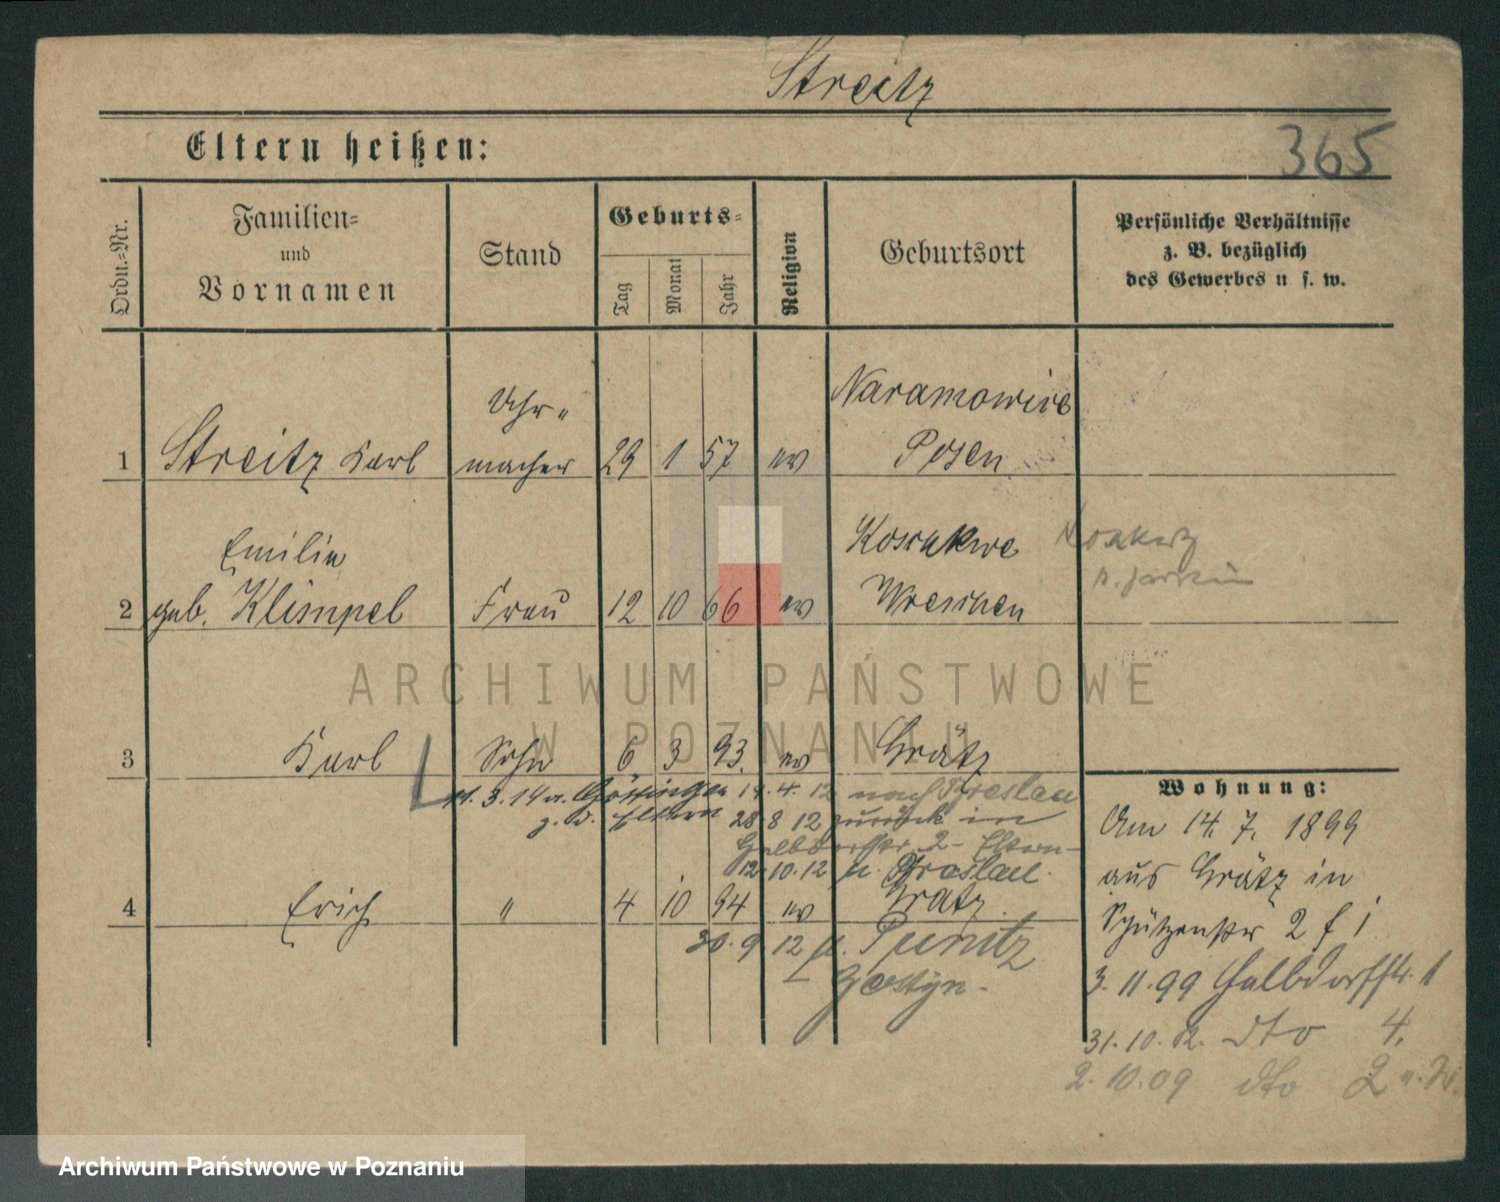 Streitz
Eltern heißen:
365
Ordn.-Nr.
Familien-
und
Vornamen
Stand
Geburts-
Tag
Monat
Jahr
Religion
Geburtsort
Persönliche Verhältnisse
z. B. bezüglich
des Gewerbes u s. w.
Uhr-
Naramowice
1 Streitz Karl macher 29 1 57 ev Posen
Emilie
2 geb. Klimpel Frau 12 10 66 ev Wreschen
3 Karl Sohn 6 3 93. ev Grätz
3.14 n. Göttingen 14.4.12 nach Breslau
28 8 12 zurück in
2 - Eltern -
12.10.12 n. Breslau.
4 Erich " 4 10 94 ev Grätz
30.9 12 n. Punitz
Gostyn -
Wohnung:
Am 14. 7. 1899
aus Grätz in
Schützenstr 2
3.11.99 Halbdorfstr. 1
31.10. dto 4.
2.10.09 dto 2
ARCHIWUM PAŃSTWOWE
W POZNANIU
Archiwum Państwowe w Poznaniu